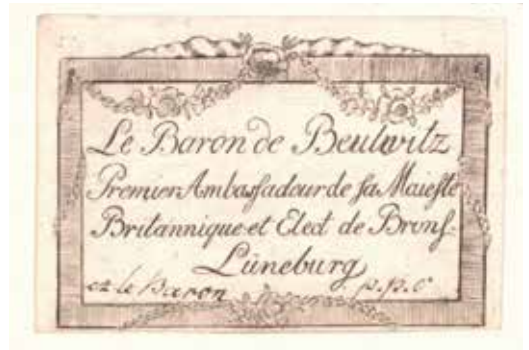 Le Baron de Beulwitz
Premier Ambaſſadeur de ſa Maieſte
Britannique et Elect de Bronſ:
Lüneburg
et le Baron p.p.c